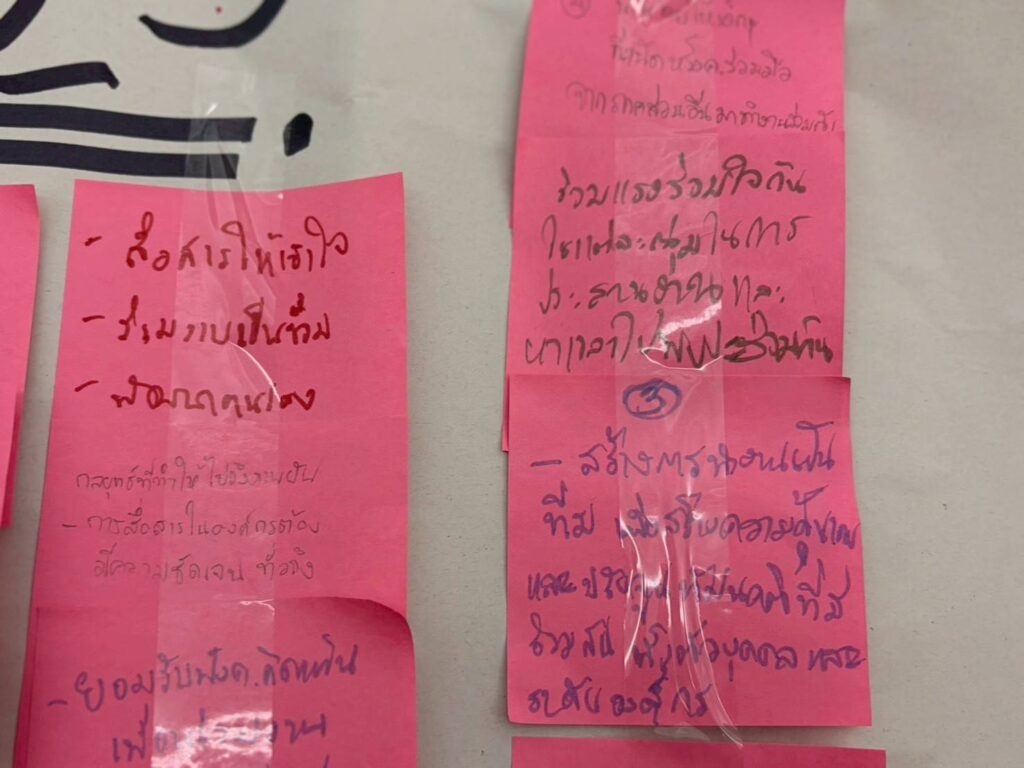 - สื่อสารให้เข้าใจ
- ร่วมงานเป็นทีม
- พัฒนาตนเอง
กลยุทธ์ที่ทำให้ไปถึงความฝัน
- การสื่อสารในองค์กรต้อง
มีความชัดเจน ทั่วถึง
- ยอมรับฟังค.คิดเห็น
เพื่อ
ร่วมมือ
จากภาคส่วนอื่นมาทำงานร่วมกัน
ร่วมแรงร่วมใจกัน
ในแต่ละกลุ่มในการ
ประสานงานและ
หาเวลาไปพบปะร่วมกัน
③
- สร้างการทำงานเป็น
ทีม เพื่อเสริมความ
และ ที่มี
ตัวบุคคล และ
ระดับองค์กร